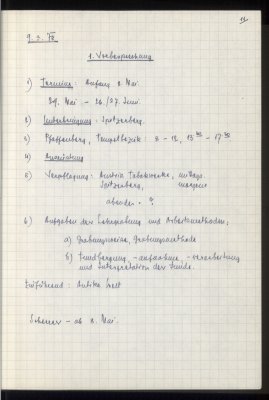 9. 3. 78
1. Vorbesprechung
1) Termine: Anfang 2. Mai
29. Mai - 26./27. Juni.
2) Unterbringung: Spitzerberg.
3) Pfaffenberg, Tempelbezirk: 8 - 12, 13 - 17
4) Ausrüstung
5) Verpflegung: Austria Tabakwerke, mittags
Spitzerberg, morgens
abends - ?
6) Aufgaben der Lehrgrabung und Arbeitsmethoden:
a) Grabungsweise, Grabungsmethode
b) Fundbergung, -aufnahme, -verarbeitung
und Interpretation der Funde.
Einführend: Antike Welt
- ab 2. Mai.